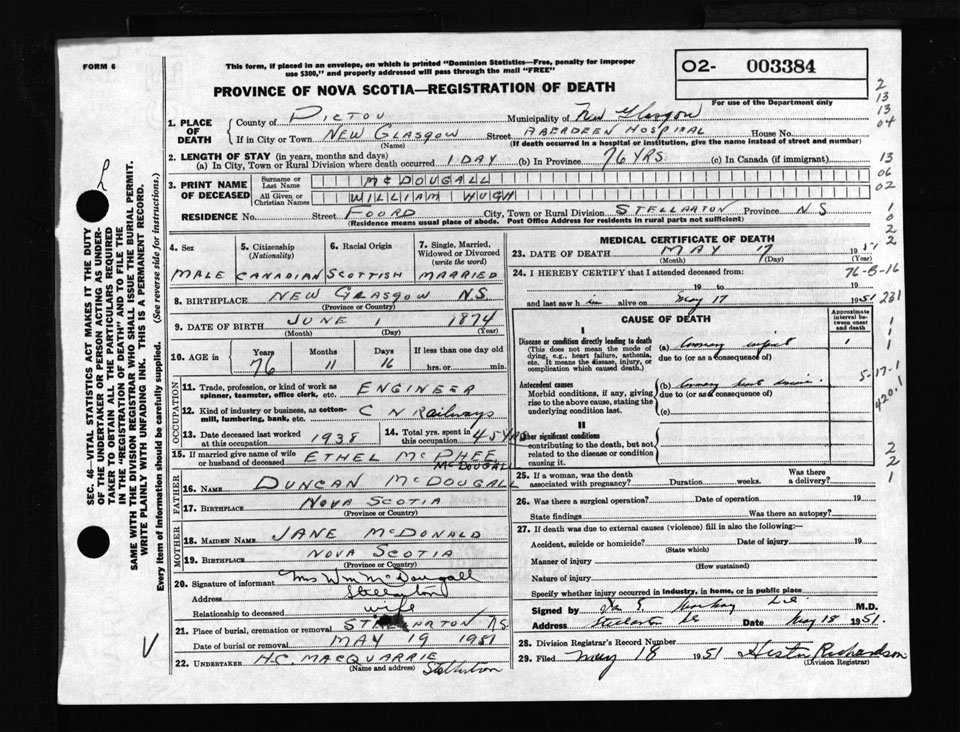 FORM 6
This form, if placed in an envelope, on which is printed "Dominion Statistics—Free, penalty for improper
use $300," and properly addressed will pass through the mail "FREE"
PROVINCE OF NOVA SCOTIA—REGISTRATION OF DEATH
O2- 003384
For use of the Department only
1. PLACE OF DEATH
County of PICTOU Municipality of New Glasgow
If in City or Town NEW GLASGOW Street ABERDEEN HOSPITAL House No.
(Name) (If death occurred in a hospital or institution, give the name instead of street and number)
2. LENGTH OF STAY (in years, months and days)
(a) In City, Town or Rural Division where death occurred 1 DAY (b) In Province 76 YRS. (c) In Canada (if immigrant)
3. PRINT NAME OF DECEASED
Surname or Last Name MCDOUGALL
All Given or Christian Names WILLIAM HUGH
RESIDENCE No. Street FOORD City, Town or Rural Division STELLARTON Province N S
(Residence means usual place of abode. Post Office Address for residents in rural parts not sufficient)
4. Sex
MALE
5. Citizenship
(Nationality)
CANADIAN
6. Racial Origin
SCOTTISH
7. Single, Married, Widowed or Divorced
(write the word)
MARRIED
8. BIRTHPLACE NEW GLASGOW N.S.
(Province or Country)
9. DATE OF BIRTH JUNE 1 1874
(Month) (Day) (Year)
10. AGE in
Years Months Days If less than one day old
76 11 16 hrs. or min.
OCCUPATION
11. Trade, profession, or kind of work as
spinner, teamster, office clerk, etc. ENGINEER
12. Kind of industry or business, as cotton-
mill, lumbering, bank, etc. C N Railways
13. Date deceased last worked
at this occupation 1938
14. Total yrs. spent in
this occupation 45 YRS
15. If married give name of wife
or husband of deceased ETHEL MCPHEE
MCDOUGALL
FATHER
16. Name DUNCAN MCDOUGALL
17. Birthplace NOVA SCOTIA
(Province or Country)
MOTHER
18. Maiden Name JANE MCDONALD
19. Birthplace NOVA SCOTIA
(Province or Country)
20. Signature of informant Mrs Wm McDougall
Address Stellarton
Relationship to deceased wife
21. Place of burial, cremation or removal STELLARTON N.S.
Date of burial or removal MAY 19 1951
22. UNDERTAKER H.C. MACQUARRIE Stellarton
(Name and address)
MEDICAL CERTIFICATE OF DEATH
23. DATE OF DEATH MAY 17 1951
(Month) (Day) (Year)
76-8-16
24. I HEREBY CERTIFY that I attended deceased from:
19 to 19
and last saw him alive on May 17 1951
231
CAUSE OF DEATH
Approximate interval between onset and death
I
Disease or condition directly leading to death
(This does not mean the mode of
dying, e.g., heart failure, asthenia,
etc. It means the disease, injury, or
complication which caused death.)
(a) Coronary infarct 1
due to (or as a consequence of)
Antecedent causes
Morbid conditions, if any, giving
rise to the above cause, stating the
underlying condition last.
(b) Coronary heart disease
due to (or as a consequence of)
(c)
5-17-1
420.1
II
Other significant conditions
contributing to the death, but not
related to the disease or condition
causing it.
25. If a woman, was the death
associated with pregnancy? Duration weeks. Was there a delivery?
26. Was there a surgical operation? Date of operation 19
State findings Was there an autopsy?
27. If death was due to external causes (violence) fill in also the following:—
Accident, suicide or homicide? Date of injury 19
(State which)
Manner of injury
(How sustained)
Nature of injury
Specify whether injury occurred in industry, in home, or in public place
Signed by M.D.
Address Stellarton Date May 18 1951.
28. Division Registrar's Record Number
29. Filed May 18 1951 Hester Richardson
(Division Registrar)
SEC. 46—VITAL STATISTICS ACT MAKES IT THE DUTY
OF THE UNDERTAKER OR PERSON ACTING AS UNDER-
TAKER TO OBTAIN ALL THE PARTICULARS REQUIRED
IN THE "REGISTRATION OF DEATH" AND TO FILE THE
SAME WITH THE DIVISION REGISTRAR WHO SHALL ISSUE THE BURIAL PERMIT.
WRITE PLAINLY WITH UNFADING INK. THIS IS A PERMANENT RECORD.
Every item of information should be carefully supplied. (See reverse side for instructions.)
2
13
13
04
13
06
02
1
0
2
2
1
1
1
2
2
1